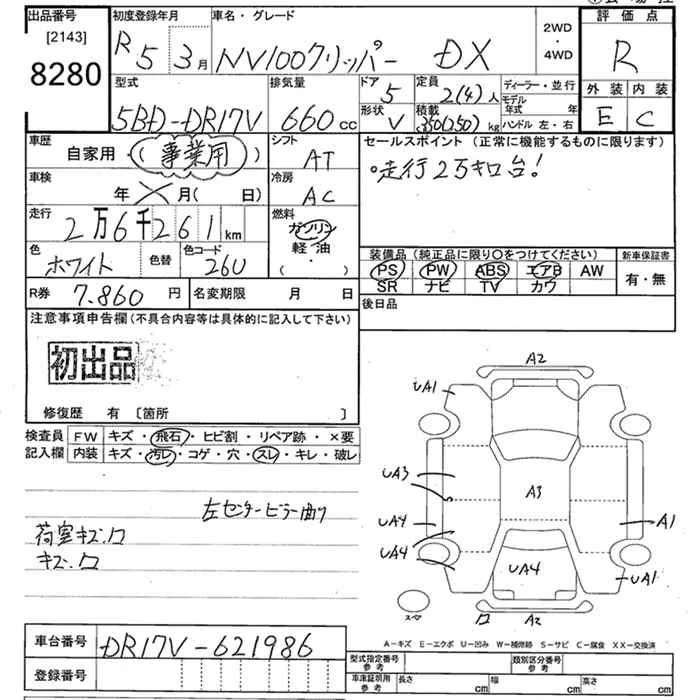 出品番号 初度登録年月 車名・グレード 2WD ・ 4WD 評価点
[2143]
8280
R5 3月 NV100クリッパー DX R
型式 排気量 ドア 定員 ディーラー・並行 外装 内装
5 2(4)人 モデル年式 年
5BD-DR17V 660cc 形状 V 積載 350(250)kg ハンドル 左・右 E C
車歴 自家用・(事業用) シフト AT
セールスポイント (正常に機能するものに限ります)
○走行2万キロ台!
車検 年 月( 日) 冷房 AC
走行 2万6千261km 燃料 ガソリン
軽油
( ・ )
色 ホワイト 色替 色コード 26U
装備品 (純正品に限り○をつけてください) 新車保証書
PS PW ABS エアB AW 有・無
SR ナビ TV カワ
R券 7.860円 名変期限 月 日
後日品
注意事項申告欄(不具合内容等は具体的に記入して下さい)
初出品
修復歴 有 [箇所 ]
検査員記入欄 FW キズ・飛石・ヒビ割・リペア跡・×要
内装 キズ・汚レ・コゲ・穴・スレ・キレ・破レ
左センターピラー曲り
荷室キズ.ワ
キズ.ワ
A2
UA1
UA3
A3
UA4
UA4
A1
UA4
UA1
スペア
ワ
A2
A-キズ E-エクボ U-凹み W-補修跡 S-サビ C-腐食 XX-交換済
車台番号 DR17V-621986
型式指定番号 参考 類別区分番号 参考
登録番号
車庫証明用 参考 長さ cm 幅 cm 高さ cm